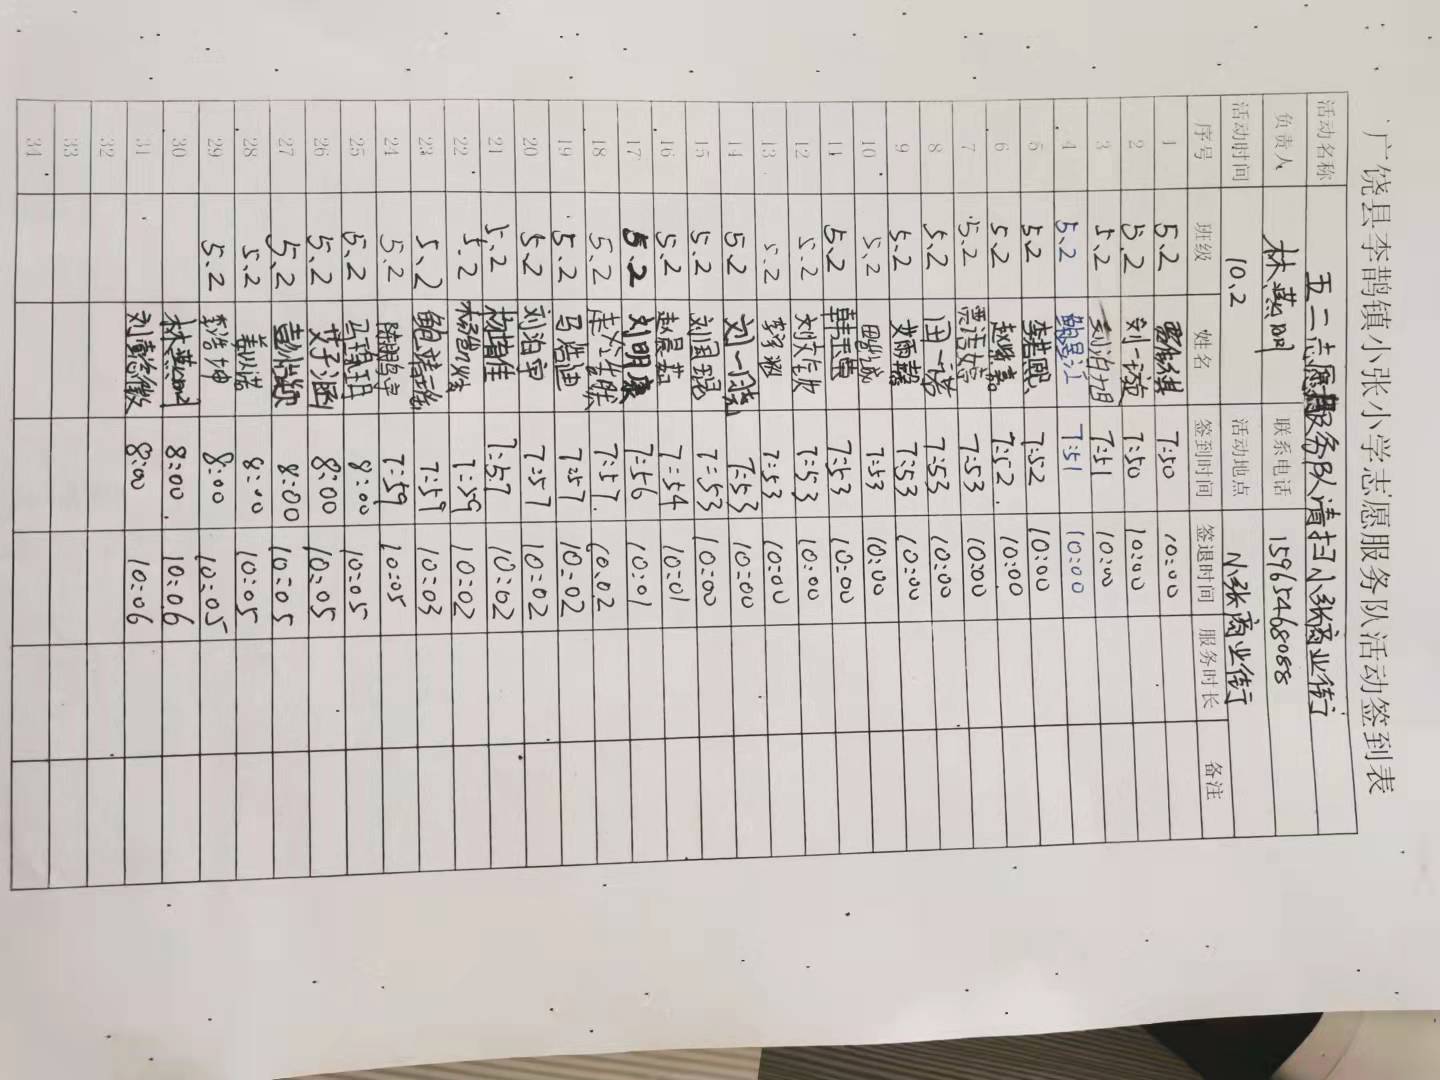 广饶县李鹊镇小张小学志愿服务队活动签到表
活动名称 五二志愿服务队清扫小张商业街
负责人 林燕 联系电话 15965468088
活动时间 10.2 活动地点 小张商业街
序号 班级 姓名 签到时间 签退时间 服务时长 备注
1 5.2 7:50 10:00
2 5.2 刘一璇 7:50 10:00
3 5.2 刘泊旭 7:51 10:00
4 5.2 鲍昱江 7:51 10:00
5 5.2 李甚熙 7:52 10:00
6 5.2 赵梓嘉 7:52 10:00
7 5.2 贾洁婷 7:53 10:00
8 5.2 田一诺 7:53 10:00
9 5.2 雨馨 7:53 10:00
10 5.2 诚 7:53 10:00
11 5.2 韩雨萱 7:53 10:00
12 5.2 刘文 7:53 10:00
13 5.2 李 7:53 10:00
14 5.2 刘一晓 7:53 10:00
15 5.2 刘国锟 7:53 10:00
16 5.2 赵晨茹 7:54 10:01
17 5.2 刘明康 7:56 10:01
18 5.2 7:57 10:02
19 5.2 马浩迪 7:57 10:02
20 5.2 刘泊宇 7:57 10:02
21 5.2 杨智雅 7:57 10:02
22 5.2 7:59 10:02
23 5.2 鲍靖瑶 7:59 10:03
24 5.2 陈鹏宇 7:59 10:05
25 5.2 马琨玥 8:00 10:05
26 5.2 子涵 8:00 10:05
27 5.2 颖 8:00 10:05
28 5.2 诺 8:00 10:05
29 5.2 浩坤 8:00 10:05
30 林燕 8:00 10:06
31 刘 8:00 10:06
32
33
34